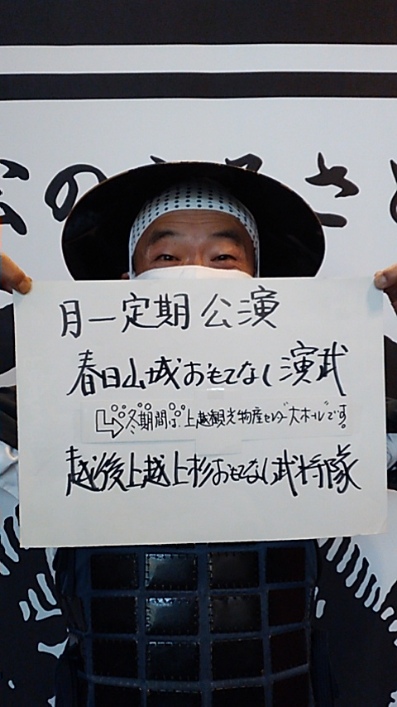 のふるさと
月一定期公演
春日山城おもてなし演武
冬期間は、上越観光物産センター大ホールです。
越後上越上杉おもてなし武将隊